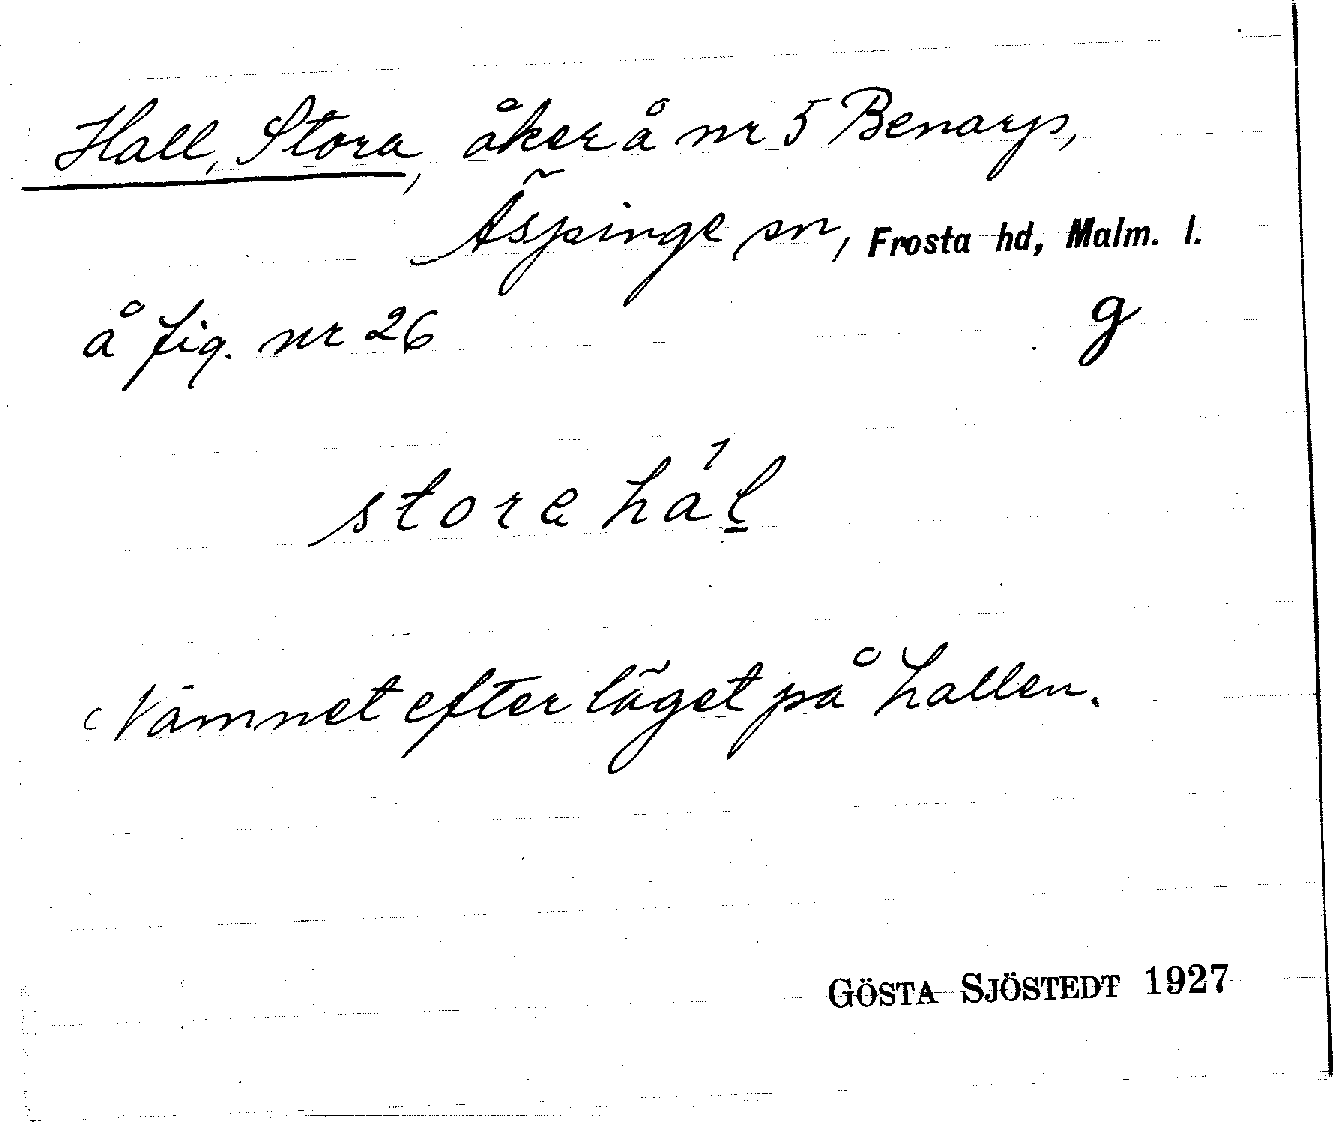 Hall, Stora, åker å nr 5 Benarp,
Äspinge sn, Frosta hd, Malm. l.
å fig. nr 26 g
store hál
Namnet efter läget på hallen.
GÖSTA SJÖSTEDT 1927